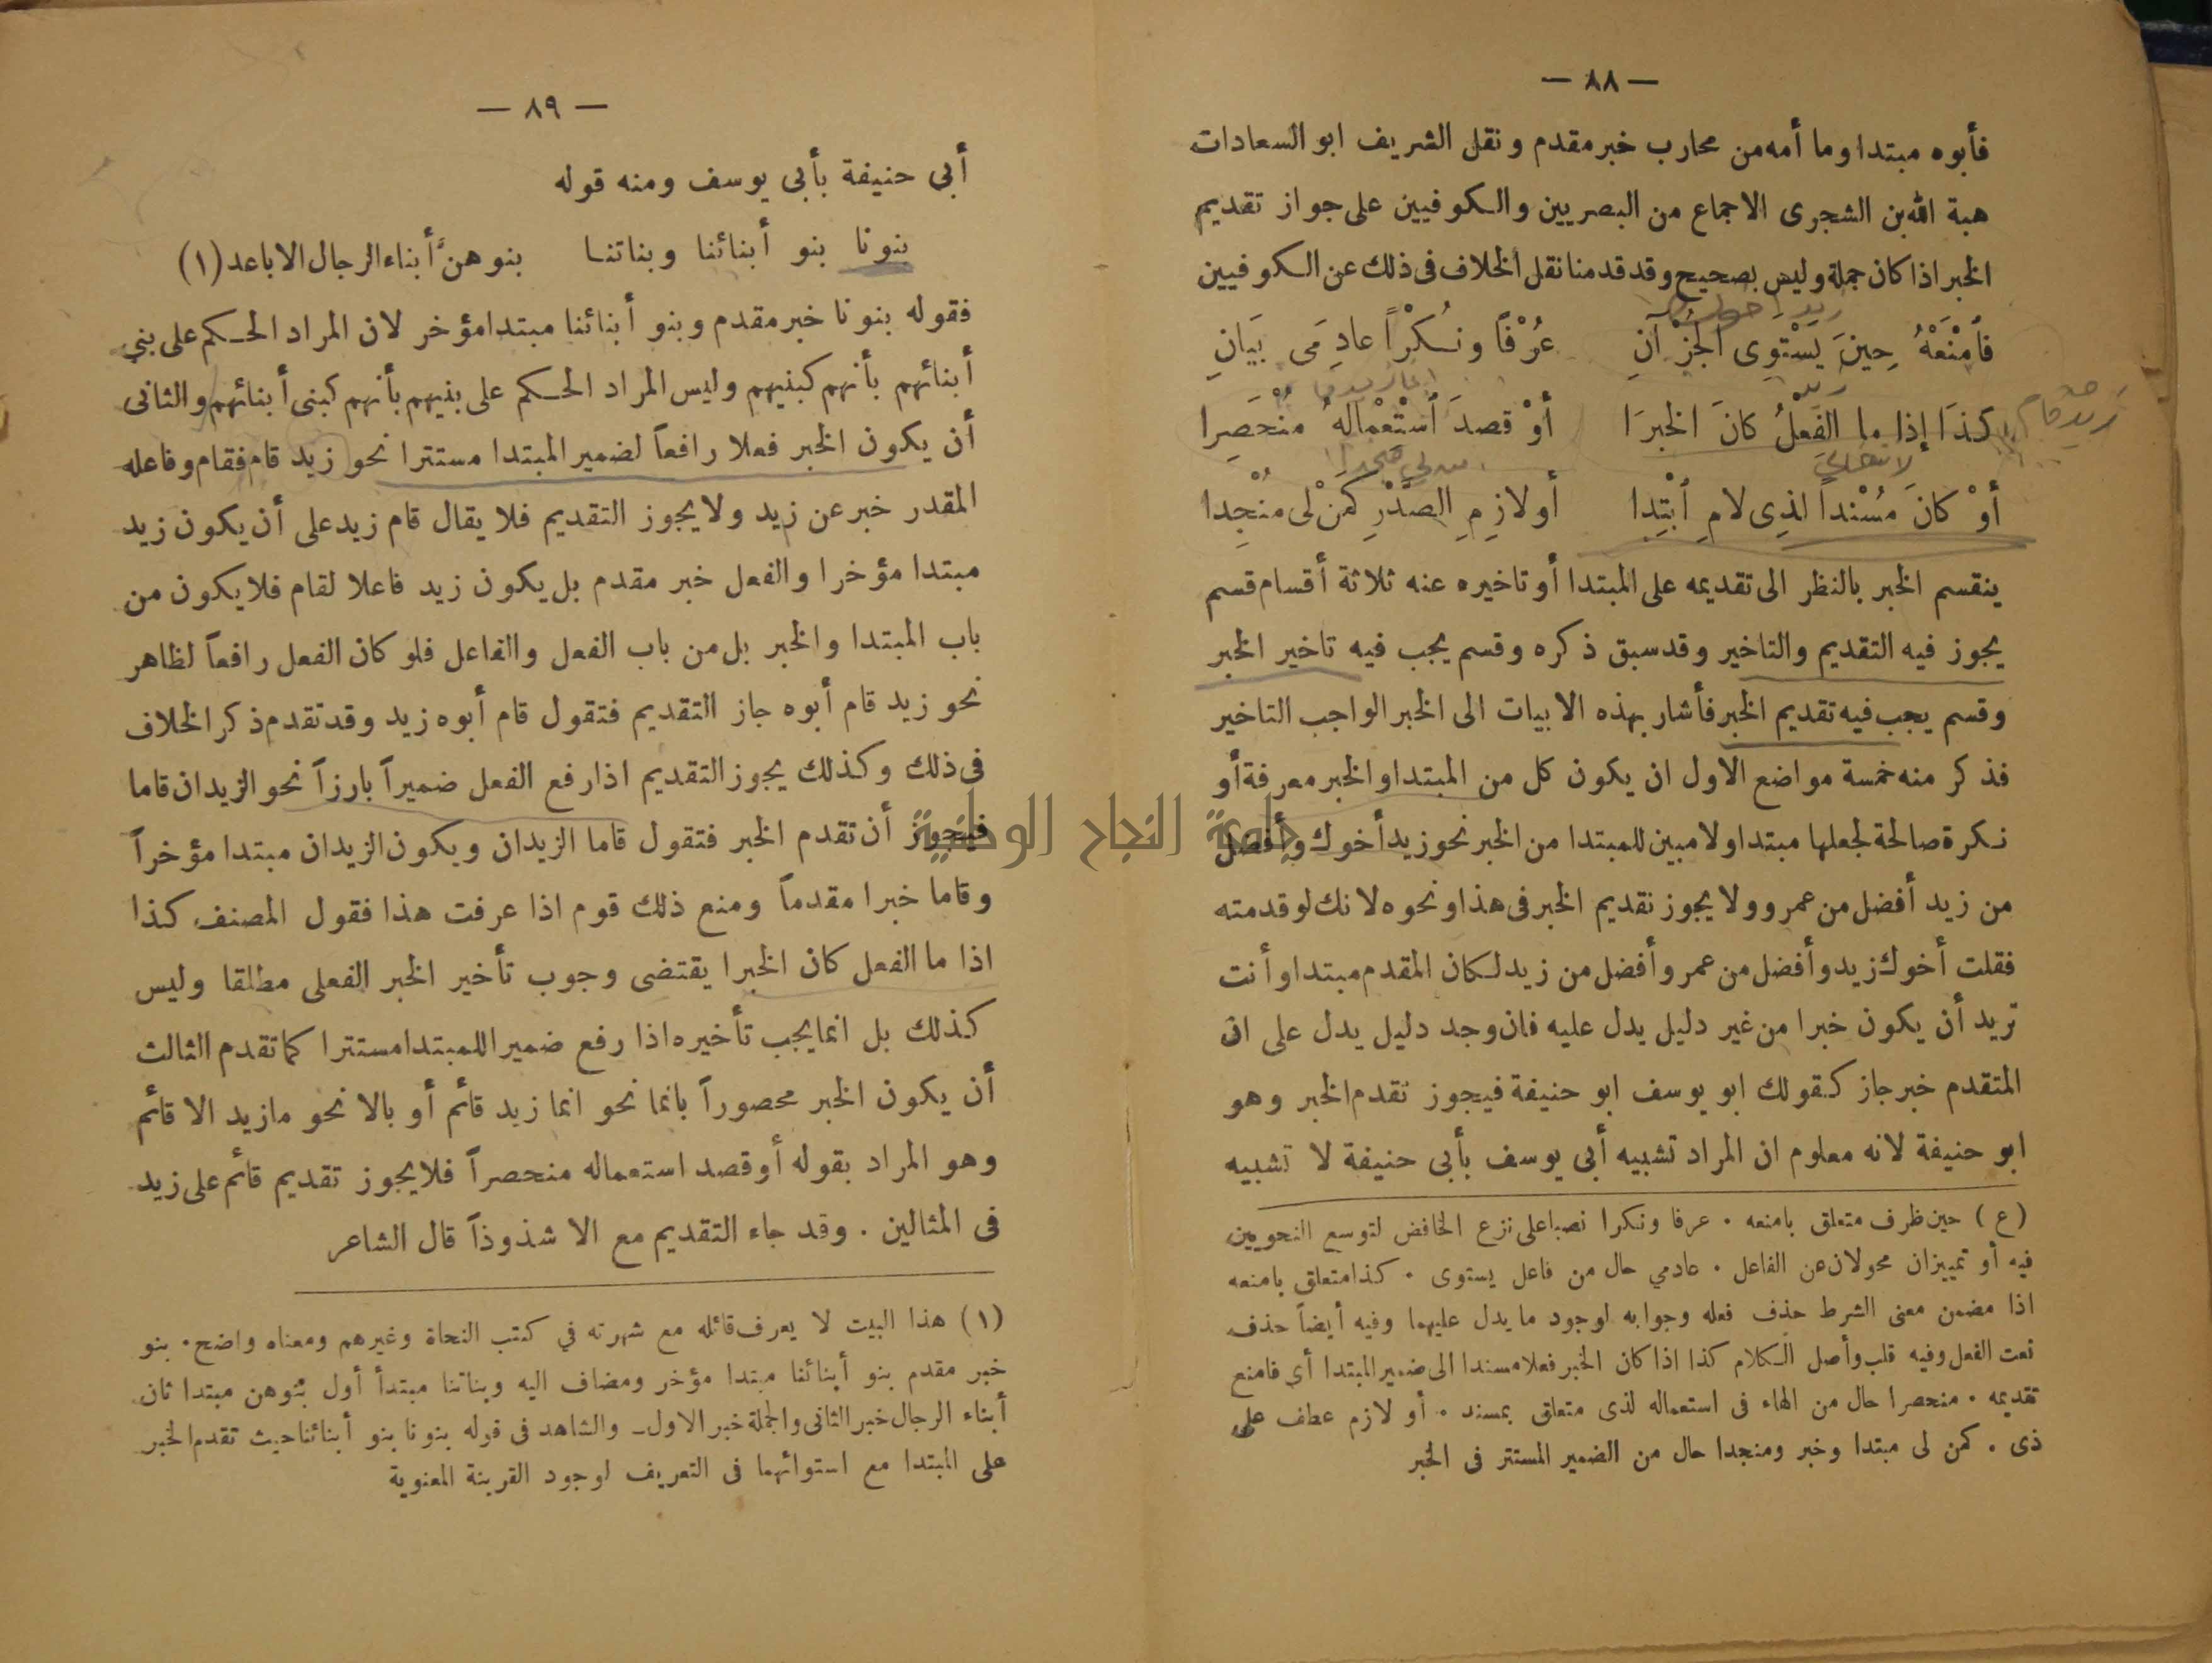 — ٨٨ —
فأبوه مبتدا وما أمه من محارب خبر مقدم ونقل الشريف ابو السعادات
هبة الله بن الشجرى الاجماع من البصريين والكوفيين على جواز تقديم
الخبر اذا كان جملة وليس بصحيح وقد قدمنا نقل الخلاف فى ذلك عن الكوفيين
فَامْنَعْهُ حِينَ يَسْتَوِى الْجُزْآنِ عُرْفًا ونُكْرًا عادِمَى بَيَانِ
كذَا إذا ما الفِعْلُ كانَ الخبَرَا أوْ قصدَ ٱسْتعْمالُهُ مُنْحَصِرا
أوْ كانَ مُسْنداً لذِى لامِ ٱبْتِدا أو لازِمِ الصّدْرِ كمَنْ لى مُنْجِدا
ينقسم الخبر بالنظر الى تقديمه على المبتدا أو تاخيره عنه ثلاثة أقسام قسم
يجوز فيه التقديم والتاخير وقد سبق ذكره وقسم يجب فيه تاخير الخبر
وقسم يجب فيه تقديم الخبر فأشار بهذه الابيات الى الخبر الواجب التاخير
فذكر منه خمسة مواضع الاول ان يكون كل من المبتدا والخبر معرفة أو
نكرة صالحة لجعلها مبتدا ولا مبين للمبتدا من الخبر نحو زيد أخوك وأفضل
من زيد أفضل من عمرو ولا يجوز تقديم الخبر فى هذا ونحوه لانك لو قدمته
فقلت أخوك زيد وأفضل من عمر وأفضل من زيد لكان المقدم مبتدا وأنت
تريد أن يكون خبرا من غير دليل يدل عليه فان وجد دليل يدل على ان
المتقدم خبر جاز كقولك ابو يوسف ابو حنيفة فيجوز تقدم الخبر وهو
ابو حنيفة لانه معلوم ان المراد تشبيه أبى يوسف بأبى حنيفة لا تشبيه
(ع) حين ظرف متعلق بامنعه . عرفا ونكرا نصبا على نزع الخافض لتوسع النحويين
فيه أو تمييزان محولان عن الفاعل . عادمي حال من فاعل يستوى . كذا متعلق بامنعه
اذا مضمن معنى الشرط حذف فعله وجوابه لوجود ما يدل عليهما وفيه أيضاً حذف
نعت الفعل وفيه قلب وأصل الكلام كذا اذا كان الخبر فعلا مسندا الى ضمير المبتدا أي فامنع
تقديمه . منحصرا حال من الهاء فى استعماله لذى متعلق بمسند . أو لازم عطف على
ذى . كمن لى مبتدا وخبر ومنجدا حال من الضمير المستتر فى الخبر
— ٨٩ —
أبي حنيفة بأبى يوسف ومنه قوله
بنونا بنو أبنائنا وبناتنا بنوهنَّ أبناء الرجال الاباعد (١)
فقوله بنونا خبر مقدم وبنو أبنائنا مبتدا مؤخر لان المراد الحكم على بني
أبنائهم بأنهم كبنيهم وليس المراد الحكم على بنيهم بأنهم كبنى أبنائهم والثانى
أن يكون الخبر فعلا رافعاً لضمير المبتدا مستترا نحو زيد قام فقام وفاعله
المقدر خبر عن زيد ولا يجوز التقديم فلا يقال قام زيد على أن يكون زيد
مبتدا مؤخرا والفعل خبر مقدم بل يكون زيد فاعلا لقام فلا يكون من
باب المبتدا والخبر بل من باب الفعل والفاعل فلو كان الفعل رافعاً لظاهر
نحو زيد قام أبوه جاز التقديم فتقول قام أبوه زيد وقد تقدم ذكر الخلاف
فى ذلك وكذلك يجوز التقديم اذا رفع الفعل ضميراً بارزاً نحو الزيدان قاما
فيجوز أن تقدم الخبر فتقول قاما الزيدان ويكون الزيدان مبتدا مؤخراً
وقاما خبرا مقدماً ومنع ذلك قوم اذا عرفت هذا فقول المصنف كذا
اذا ما الفعل كان الخبرا يقتضى وجوب تأخير الخبر الفعلى مطلقا وليس
كذلك بل انما يجب تأخيره اذا رفع ضميرا للمبتدا مستترا كما تقدم الثالث
أن يكون الخبر محصوراً بانما نحو انما زيد قائم أو بالا نحو ما زيد الا قائم
وهو المراد بقوله أو قصد استعماله منحصراً فلا يجوز تقديم قائم على زيد
فى المثالين . وقد جاء التقديم مع الا شذوذاً قال الشاعر
(١) هذا البيت لا يعرف قائله مع شهرته في كتب النحاة وغيرهم ومعناه واضح . بنو
خبر مقدم بنو أبنائنا مبتدا مؤخر ومضاف اليه وبناتنا مبتدأ أول بنوهن مبتدا ثان
أبناء الرجال خبر الثانى والجملة خبر الاول ـ والشاهد فى قوله بنونا بنو أبنائنا حيث تقدم الخبر
على المبتدا مع استوائهما فى التعريف لوجود القرينة المعنوية
جامعة النجاح الوطنية